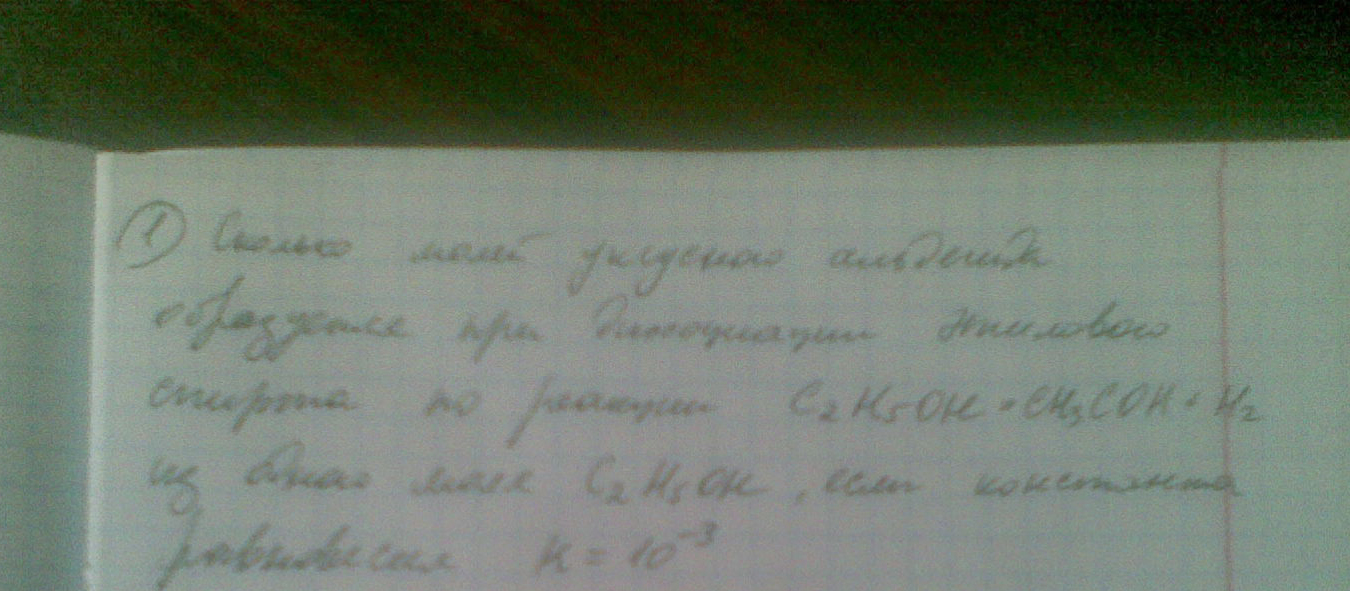 ① Сколько молей уксусного альдегида
образуется при диссоциации этилового
спирта по реакции C₂H₅OH = CH₃COH + H₂
из одного моля C₂H₅OH, если константа
равновесия K = 10⁻³